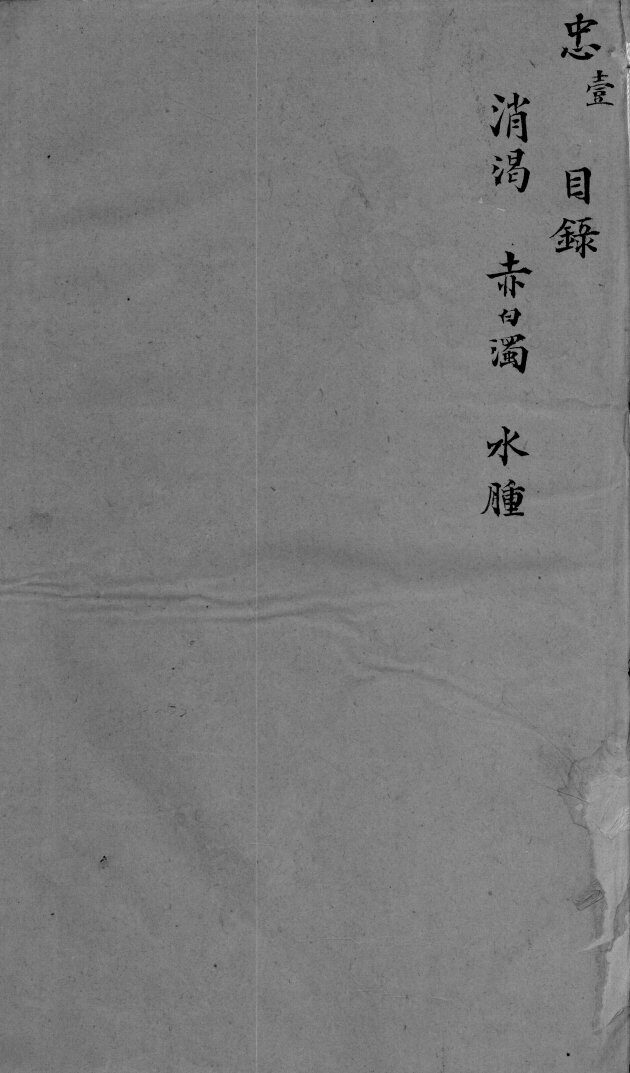 忠壹 目錄
消渴 赤白濁 水腫